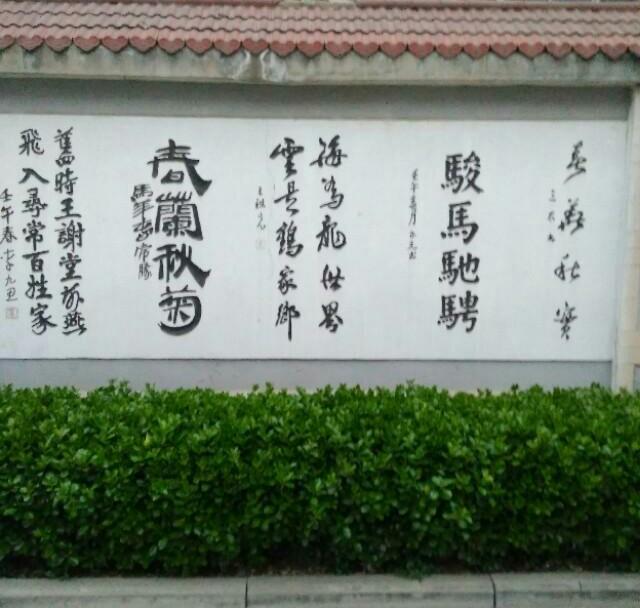 春華秋實
駿馬馳騁
海為龍世界
雲是鶴家鄉
春蘭秋菊
舊時王謝堂前燕
飛入尋常百姓家
壬午春